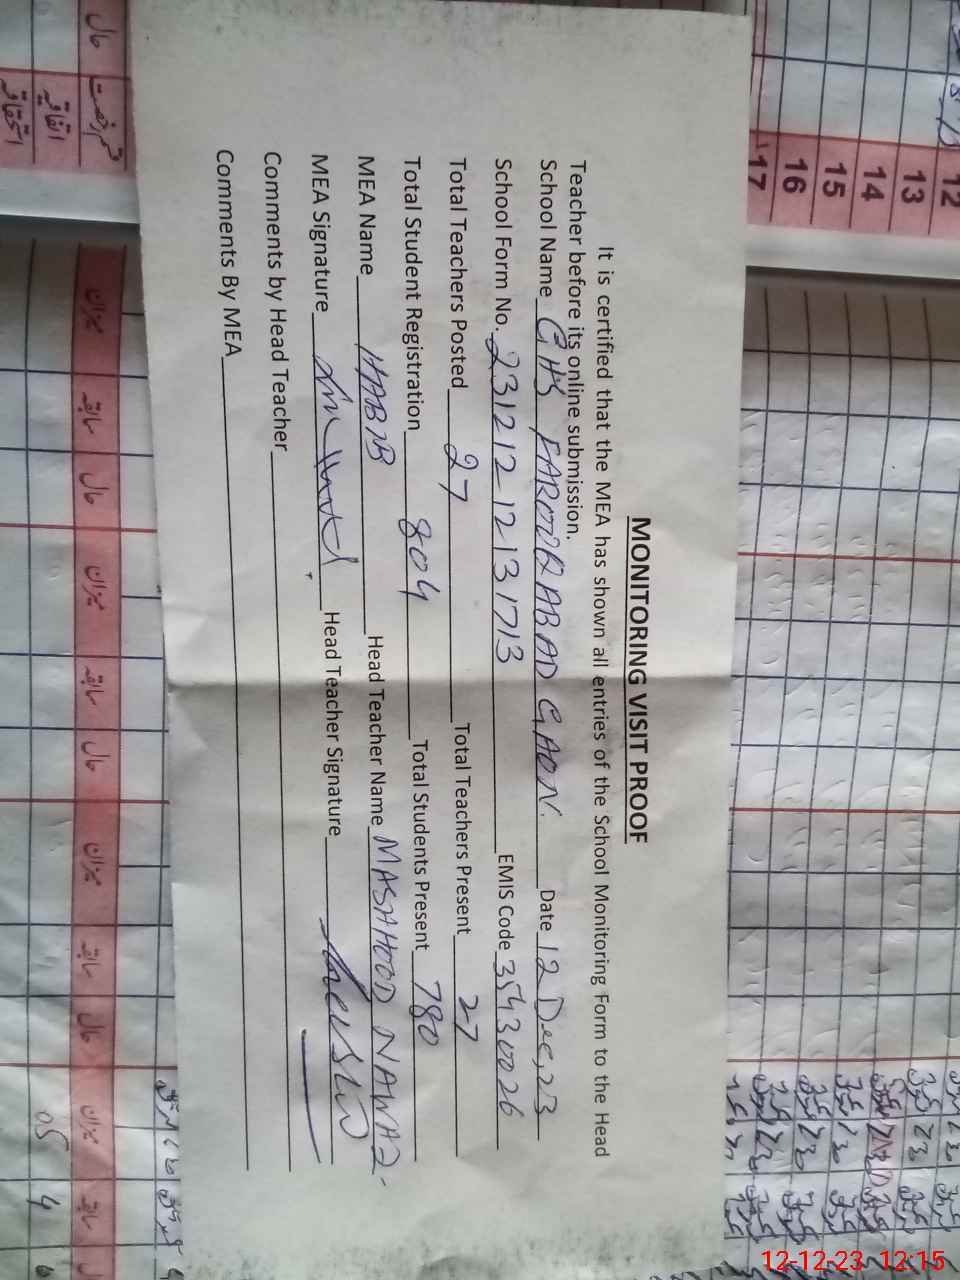 MONITORING VISIT PROOF
It is certified that the MEA has shown all entries of the School Monitoring Form to the Head
Teacher before its online submission.
School Name GHS FAROOQABAD GAON. Date 12 Dec, 23
School Form No. 231212 12131713 EMIS Code 35430026
Total Teachers Posted 27 Total Teachers Present 27
Total Student Registration 804 Total Students Present 780
MEA Name HABIB Head Teacher Name MASAHOOD NAWAZ
MEA Signature Head Teacher Signature
Comments by Head Teacher
Comments By MEA
12
13
14
15
16
17
حال
اتفاقیہ
استحقاقیہ
میزان
سابقہ
حال
میزان
سابقہ
حال
میزان
سابقہ
حال
میزان
سابقہ
05
4
12-12-23 12:15